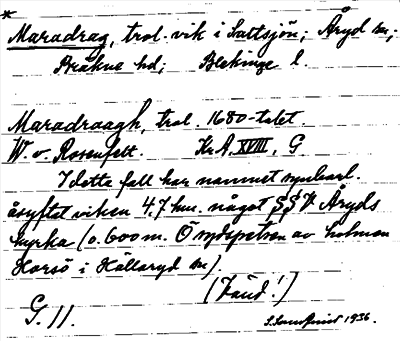 *
Maradrag, trol. vik i Saltsjön; Åryd sn;
Bräkne hd; Blekinge l.
Maradraagh, trol. 1680-talet.
W. v. Rosenfelt. Kr A XVIII, G
I detta fall har namnet synbarl.
åsyftat viken 4,7 km. något S Åryds
kyrka (o. 600 m. Ö sydspetsen av holmen
Horsö i Hällaryd sn).
(Känd!)
G. 11. 1936.